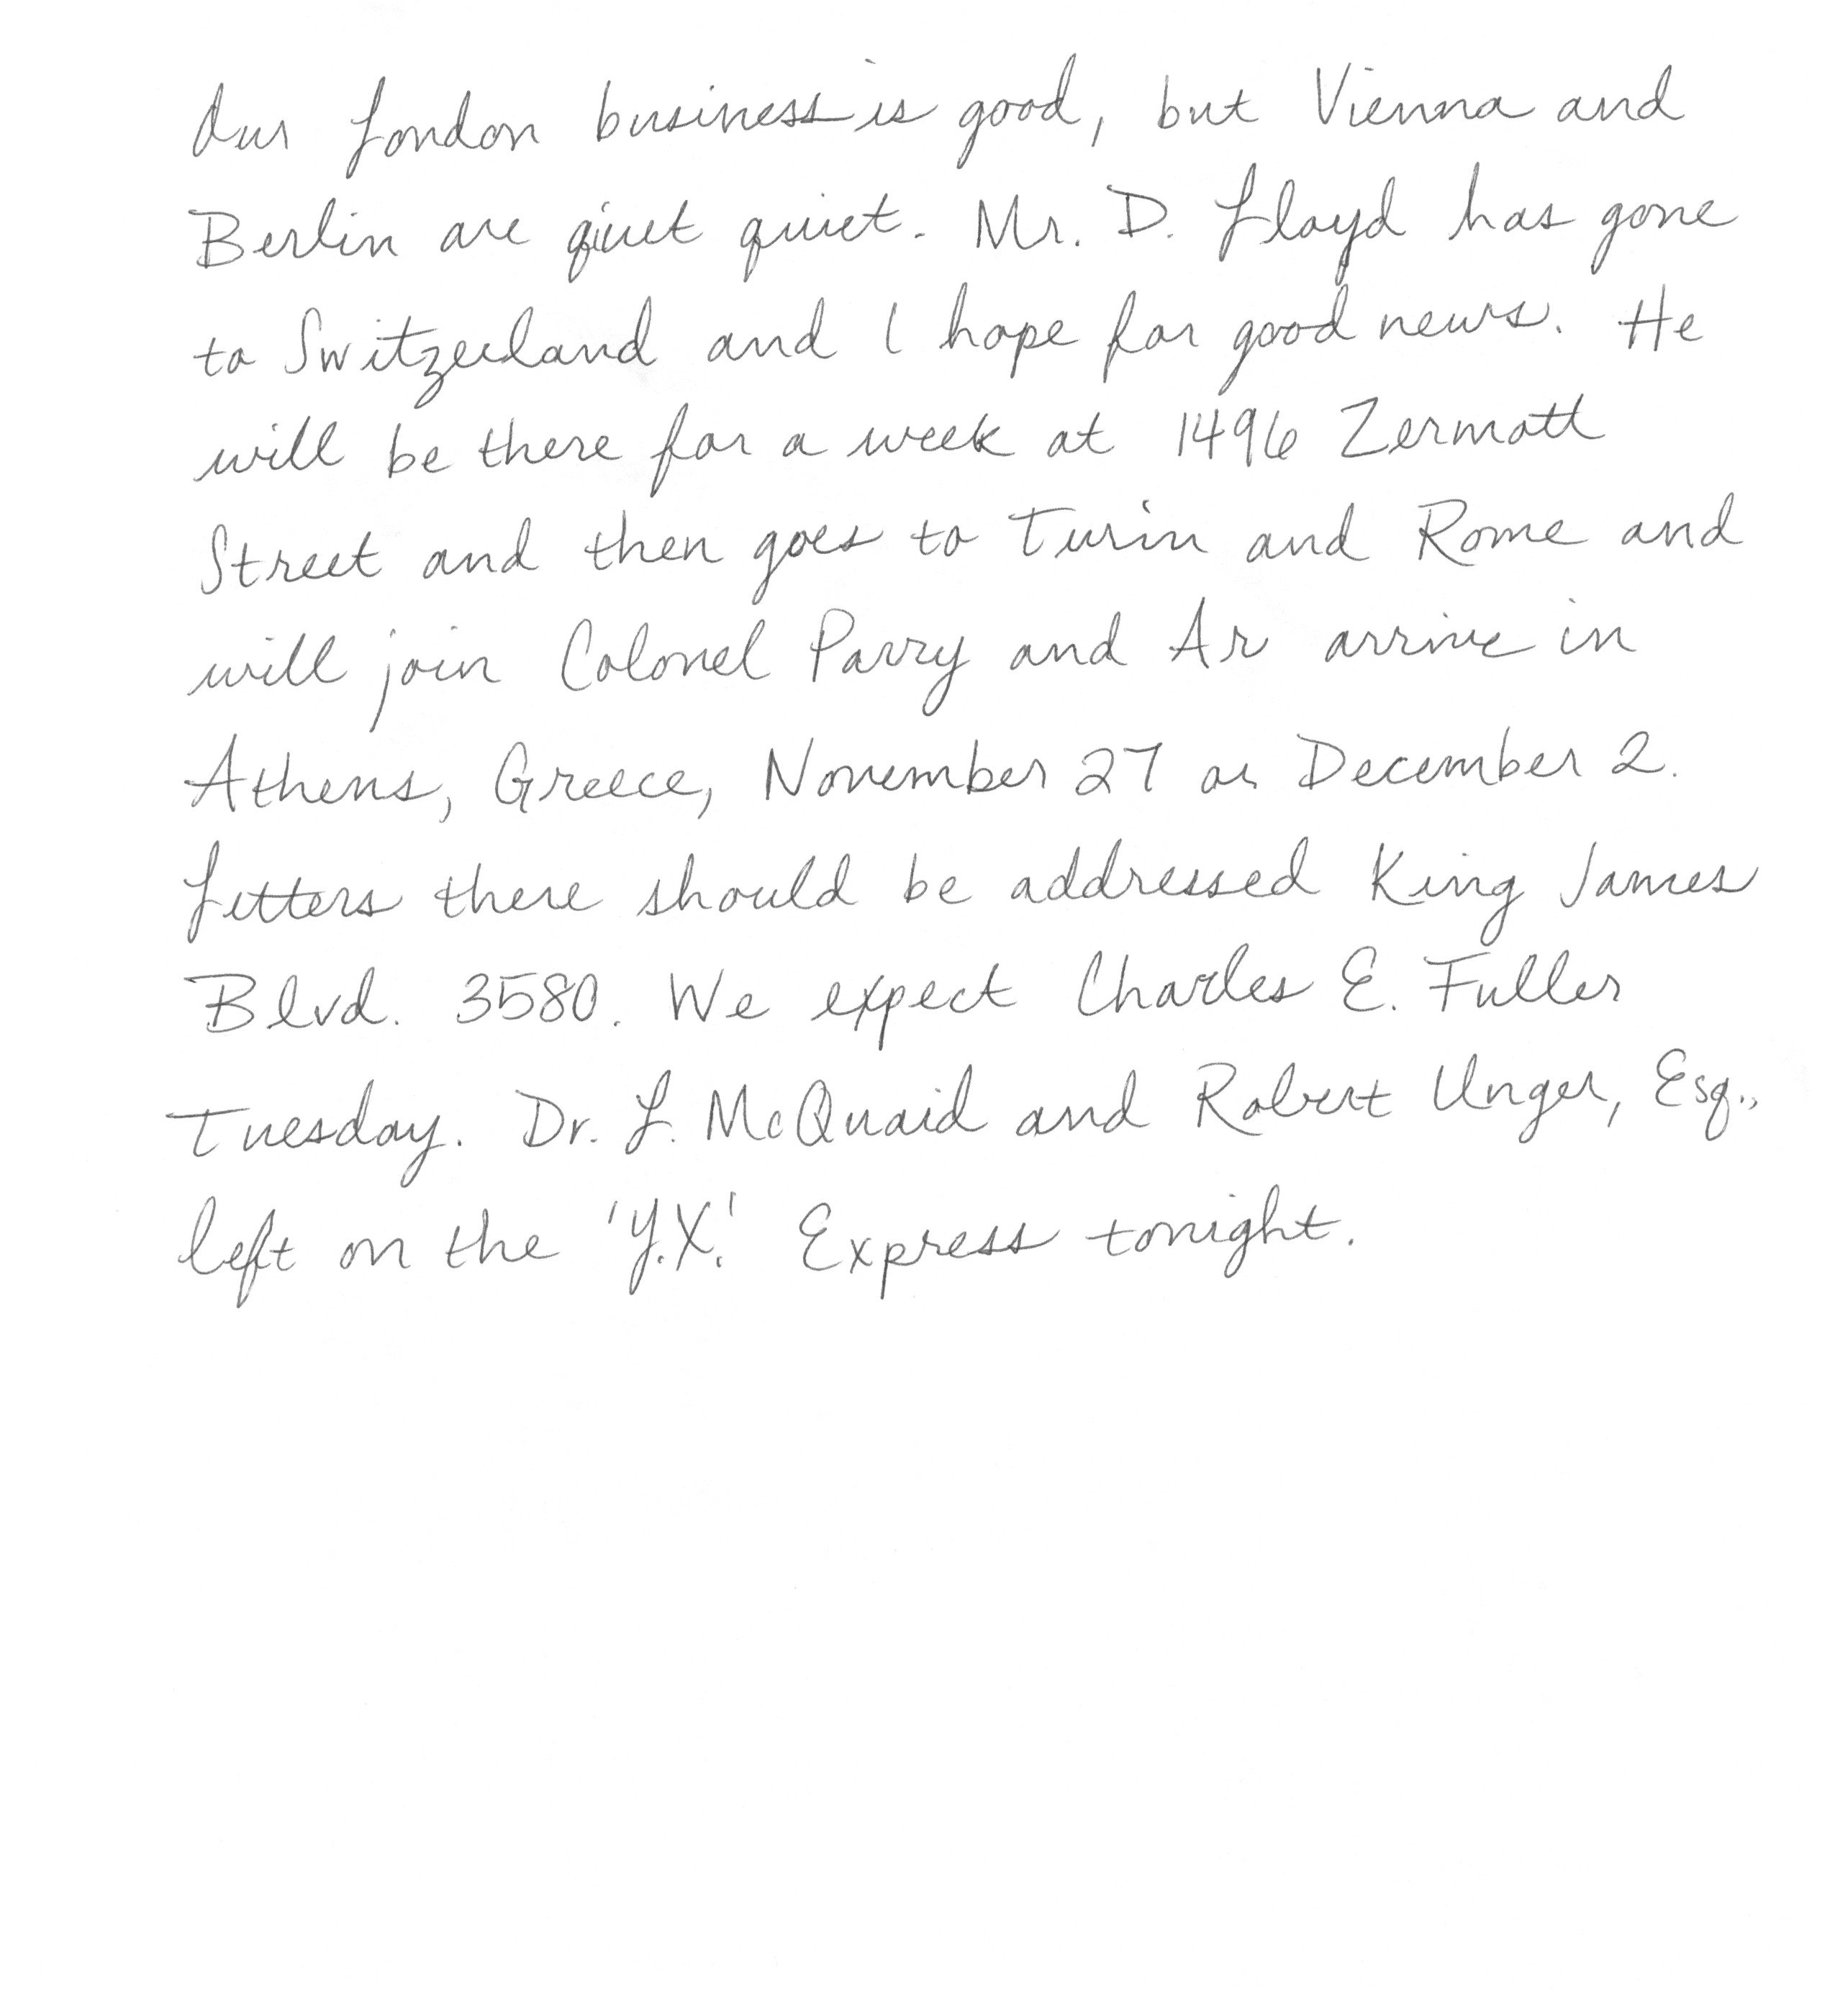 Our London business is good, but Vienna and
Berlin are qiuet quiet. Mr. D. Lloyd has gone
to Switzerland and I hope for good news. He
will be there for a week at 1496 Zermatt
Street and then goes to Turin and Rome and
will join Colonel Parry and Ar arrive in
Athens, Greece, November 27 or December 2.
Letters there should be addressed King James
Blvd. 3580. We expect Charles E. Fuller
Tuesday. Dr. L. McQuaid and Robert Unger, Esq.,
left on the 'Y.X.' Express tonight.